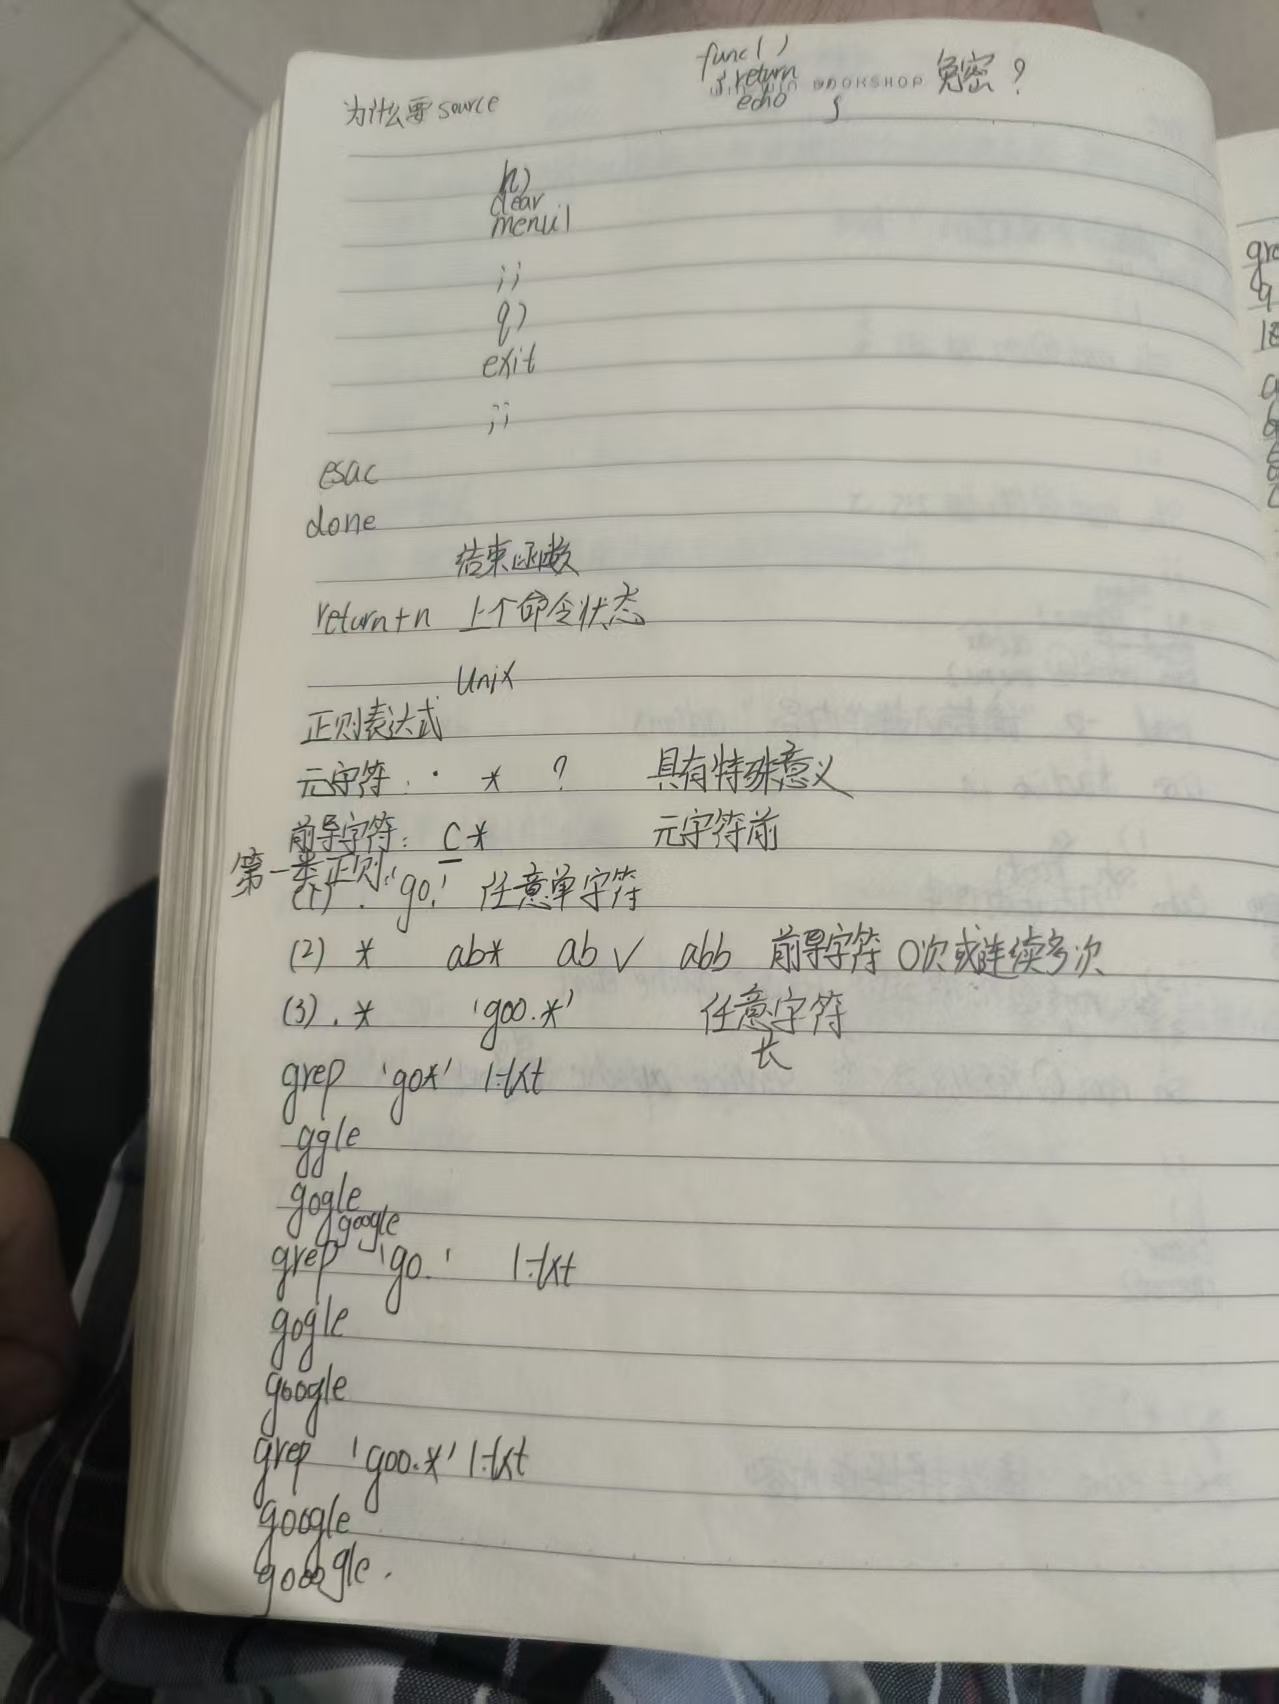 func()
{ return
echo
}
BOOKSHOP
免密?
为什么要source
h)
clear
menu1
;;
q)
exit
;;
esac
done
结束函数
return+n 上个命令状态
Unix
正则表达式
元字符: . * ? 具有特殊意义
前导字符: c* 元字符前
第一类正则:
(1) . 'go.' 任意单字符
(2) * ab* ab √ abb 前导字符 0次或连续多次
(3) .* 'goo.*' 任意字符
长
grep 'go*' 1.txt
ggle
gogle
google
grep 'go.' 1.txt
gogle
google
grep 'goo.*' 1.txt
google
gooogle.